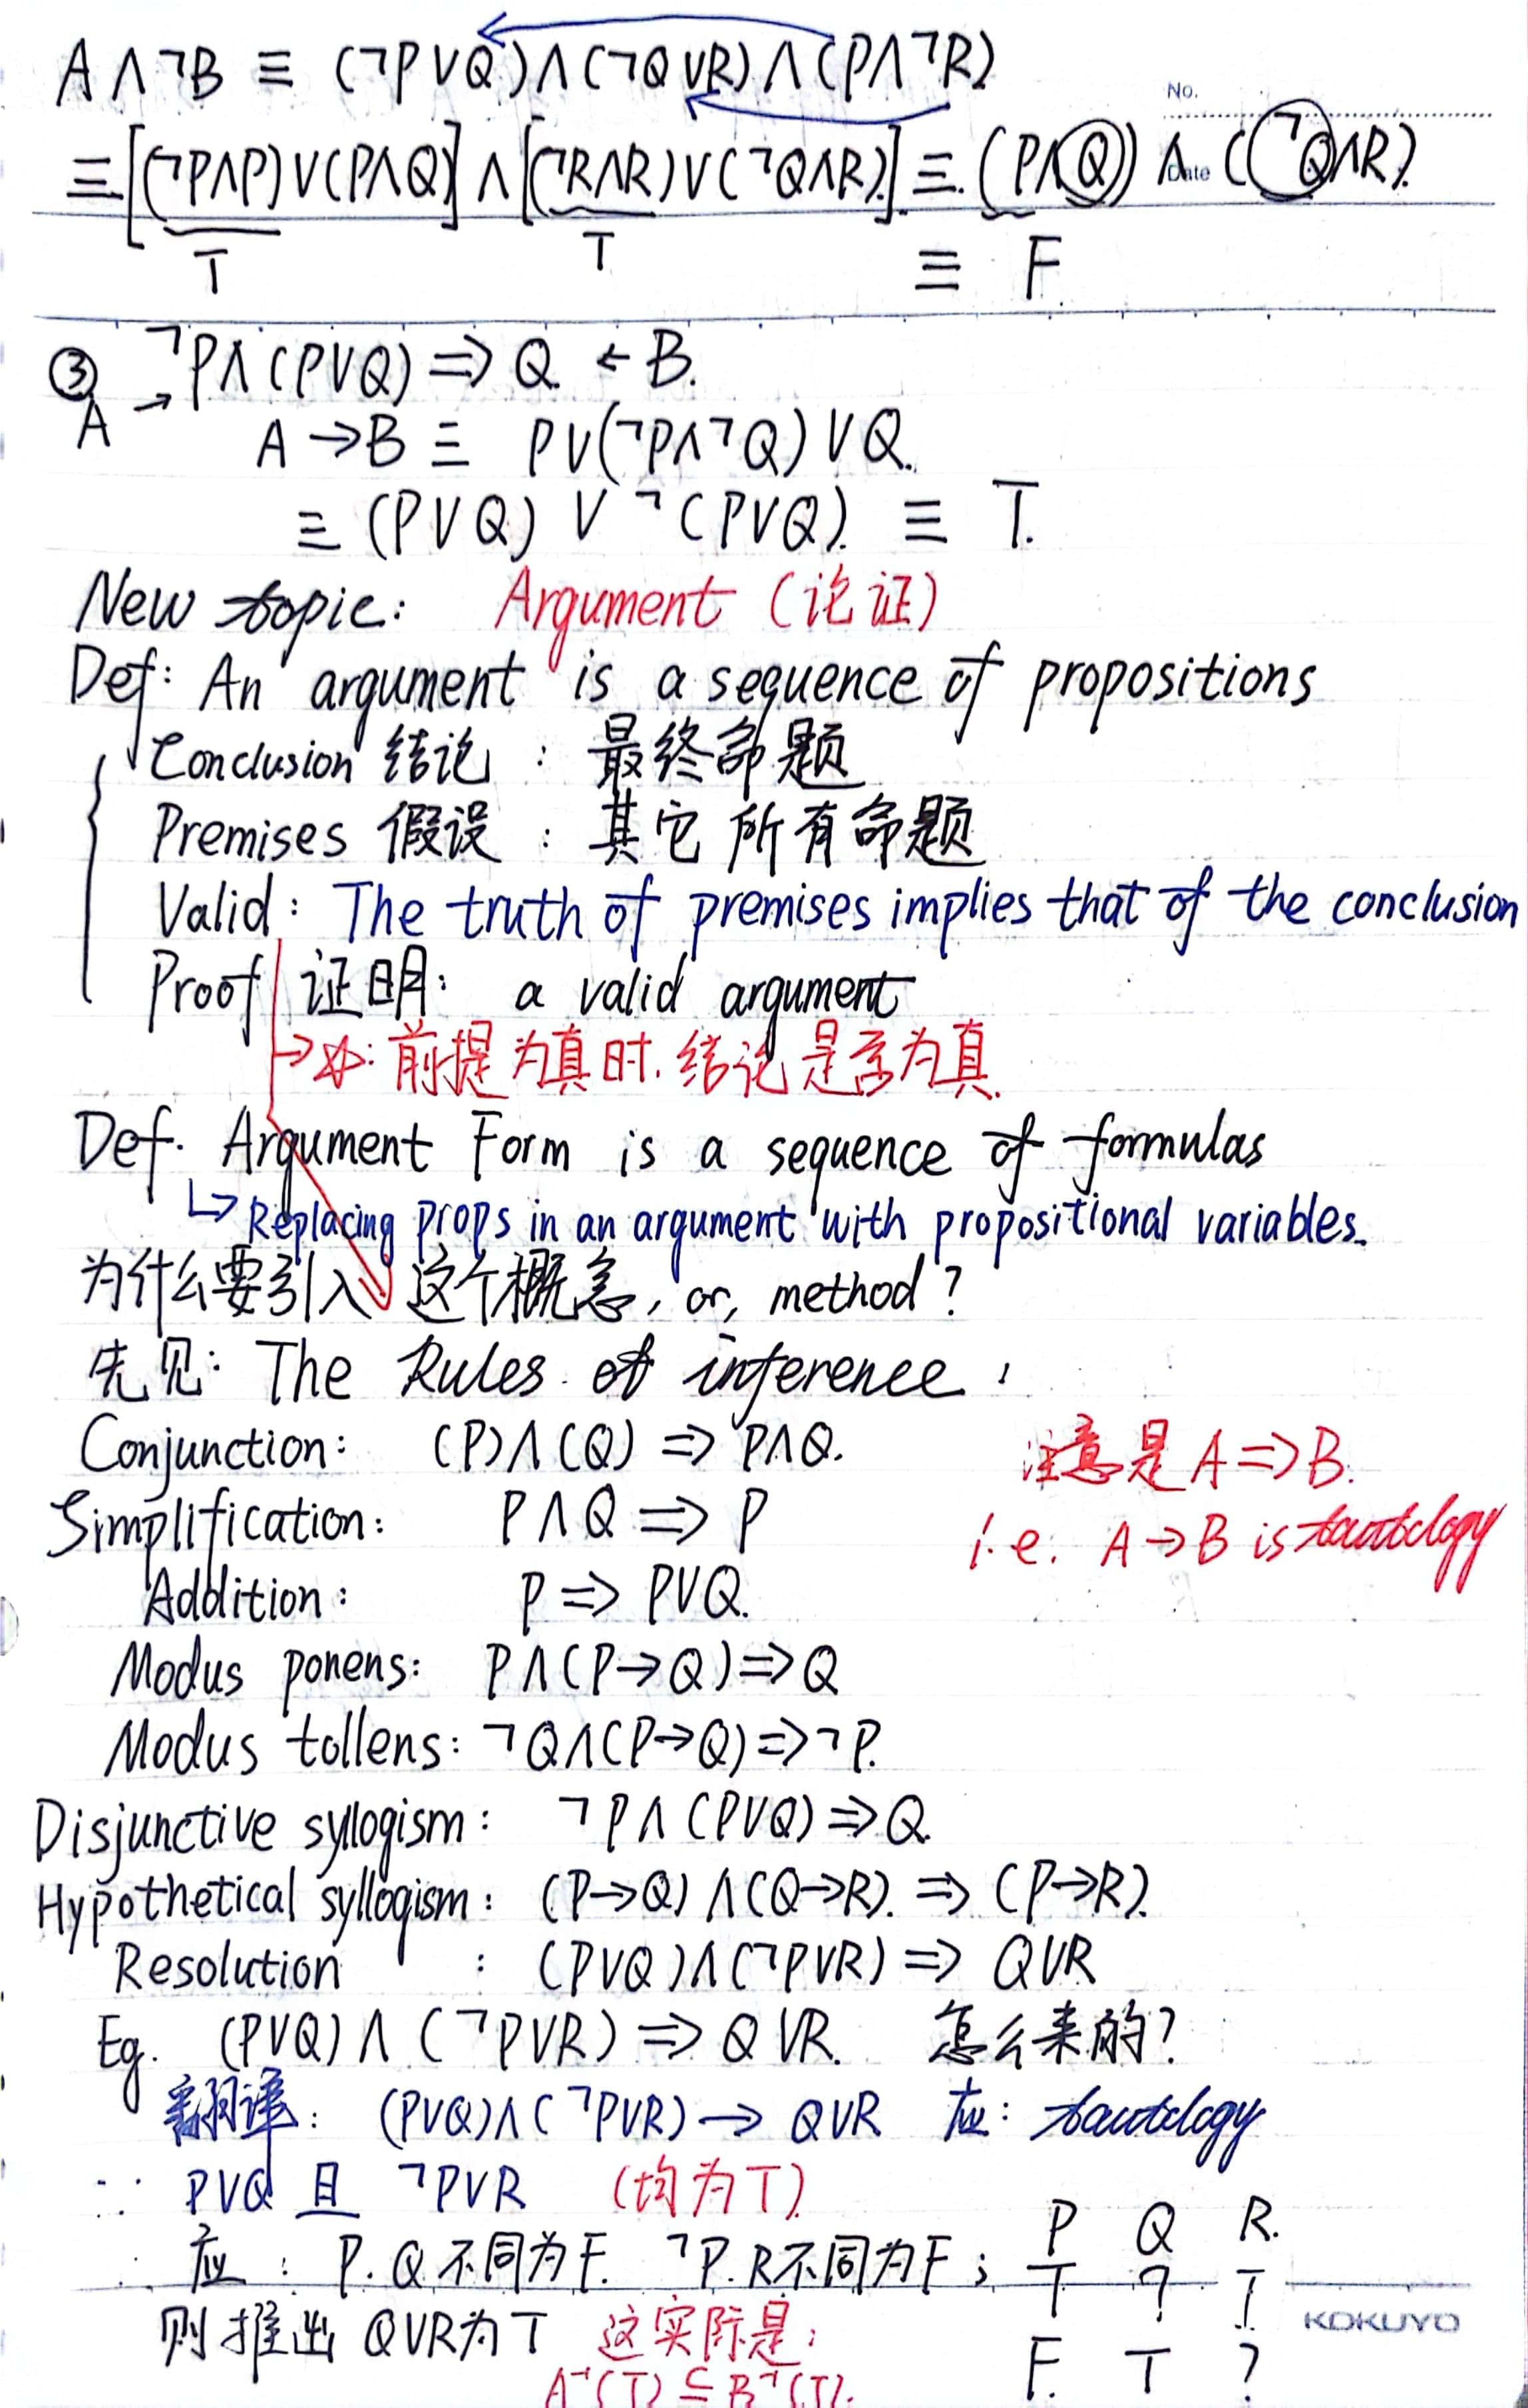 A∧¬B ≡ (¬P∨Q)∧(¬Q∨R)∧(P∧¬R)
No.
Date
≡[(¬P∧P)∨(P∧Q)]∧[(¬R∧R)∨(¬Q∧R)] ≡ (P∧Q)∧(¬Q∧R).
T T ≡ F.
③ ¬P∧(P∨Q) ⇒ Q ← B.
A →
A→B ≡ P∨(¬P∧¬Q)∨Q.
≡ (P∨Q) ∨ ¬(P∨Q). ≡ T.
New topic: Argument (论证)
Def: An argument is a sequence of propositions
Conclusion 结论 : 最终命题
Premises 假设 : 其它所有命题
Valid: The truth of premises implies that of the conclusion
Proof 证明: a valid argument
→☆: 前提为真时.结论是否为真.
Def. Argument Form is a sequence of formulas
↳ Replacing props in an argument with propositional variables.
为什么要引入这个概念, or, method?
先见: The Rules of inference,
Conjunction: (P)∧(Q) ⇒ P∧Q. 注意是 A⇒B.
Simplification: P∧Q ⇒ P i.e. A→B is tautology
Addition: P ⇒ P∨Q.
Modus ponens: P∧(P→Q)⇒Q
Modus tollens: ¬Q∧(P→Q)⇒¬P.
Disjunctive syllogism: ¬P∧(P∨Q)⇒Q.
Hypothetical syllogism: (P→Q)∧(Q→R). ⇒ (P→R).
Resolution : (P∨Q)∧(¬P∨R) ⇒ Q∨R
Eg. (P∨Q)∧(¬P∨R) ⇒ Q∨R. 怎么来的?
翻译: (P∨Q)∧(¬P∨R) → Q∨R 应: tautology
∵ P∨Q 且 ¬P∨R (均为T)
∴ 应: P.Q不同为F. ¬P.R不同为F;
则推出 Q∨R为T 这实际是:
A⁻¹(T) ⊆ B⁻¹(T).
P Q R.
T ? T
F. T ?
KOKUYO